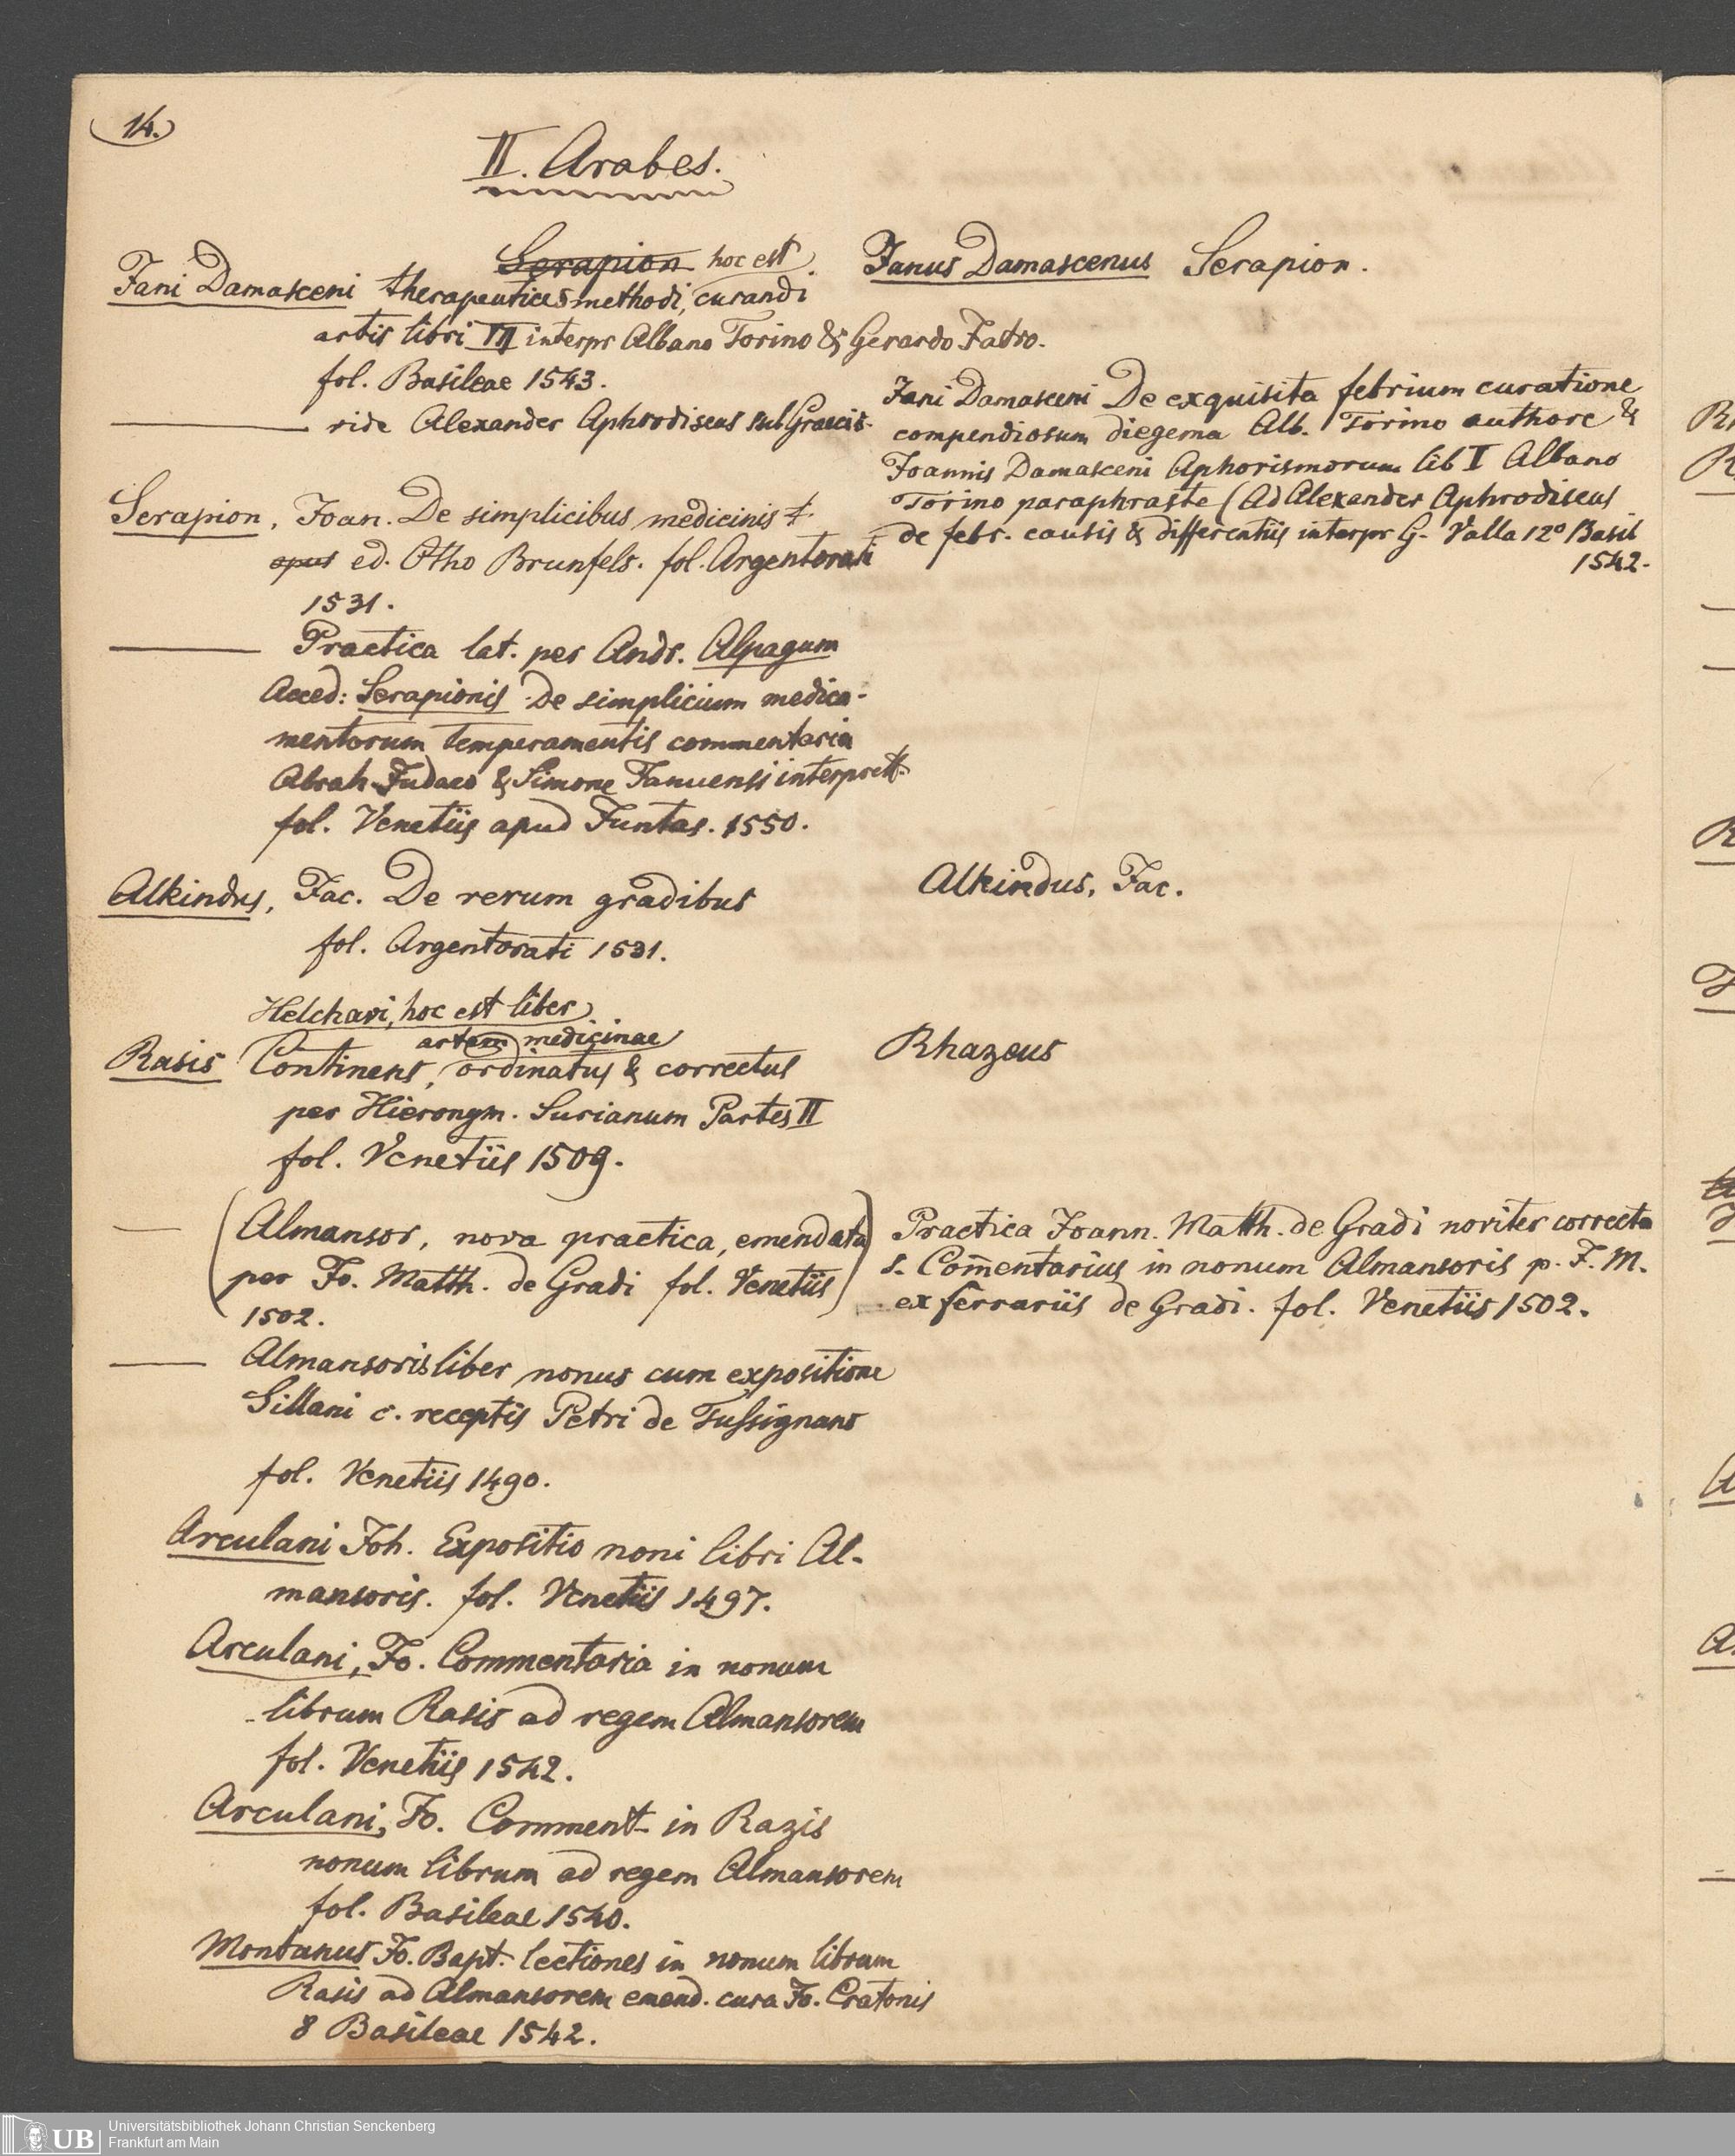 14.
II. Arabes.
Serapion hoc est
Jani Damasceni therapeutices methodi, curandi
artis libri VII interpr Albano Torino & Gerardo Jatro.
fol. Basileae 1543.
vide Alexander Aphrodiseus sub Graecis.
Serapion, Joan. De simplicibus medicinis
opus ed. Otho Brunfels. fol. Argentorati
1531.
Practica lat. per Andr. Alpagum
Acced: Serapionis De simplicium medica-
mentorum temperamentis commentaria
Abrah. Judaeo & Simone Januensi interprett.
fol. Venetiis apud Juntas. 1550.
Alkindus, Jac. De rerum gradibus
fol. Argentorati 1531.
Helchavi, hoc est liber
artem medicinae
Rasis Continens, ordinatus & correctus
per Hieronym. Surianum Partes II
fol. Venetiis 1509.
(Almansor, nova practica, emendata
per Jo. Matth. de Gradi fol. Venetiis)
1502.
Almansoris liber nonus cum expositione
Sillani c. receptis Petri de Tussignano
fol. Venetiis 1490.
Arculani Joh. Expositio noni libri Al-
mansoris. fol. Venetiis 1497.
Arculani, Jo. Commentaria in nonum
librum Rasis ad regem Almansorem
fol. Venetiis 1542.
Arculani, Jo. Comment. in Razis
nonum librum ad regem Almansorem
fol. Basileae 1540.
Montanus Jo. Bapt. lectiones in nonum librum
Rasis ad Almansorem emend. cura Jo. Cratonis
8 Basileae 1542.
Janus Damascenus Serapion.
Jani Damasceni De exquisita febrium curatione
compendiosum diegema Alb. Torino authore &
Joannis Damasceni Aphorismorum lib I Albano
Torino paraphraste (Ad Alexander Aphrodiseus
de febr. causis & differentiis interpr G. Valla 12° Basil
1542.
Alkindus, Jac.
Rhazeus
Practica Joann. Matth. de Gradi noviter correcta
s. Com̅entarius in nonum Almansoris p. J. M.
ex ferrariis de Gradi. fol. Venetiis 1502.
UB
Universitätsbibliothek Johann Christian Senckenberg
Frankfurt am Main